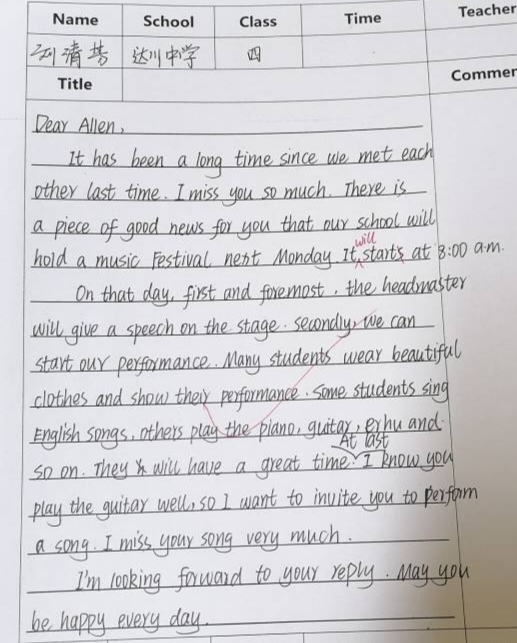 Name School Class Time Teacher
刘清梦 达川中学 四
Title Commen
Dear Allen,
It has been a long time since we met each
other last time. I miss you so much. There is
a piece of good news for you that our school will
will
hold a music Festival next Monday. It starts at 8:00 a.m.
On that day, first and foremost, the headmaster
will give a speech on the stage. Secondly, we can
start our performance. Many students wear beautiful
clothes and show their performance. Some students sing
English songs, others play the piano, guitar, erhu and
At last
so on. They will have a great time. I know you
play the guitar well, so I want to invite you to perform
a song. I miss your song very much.
I'm looking forward to your reply. May you
be happy every day.